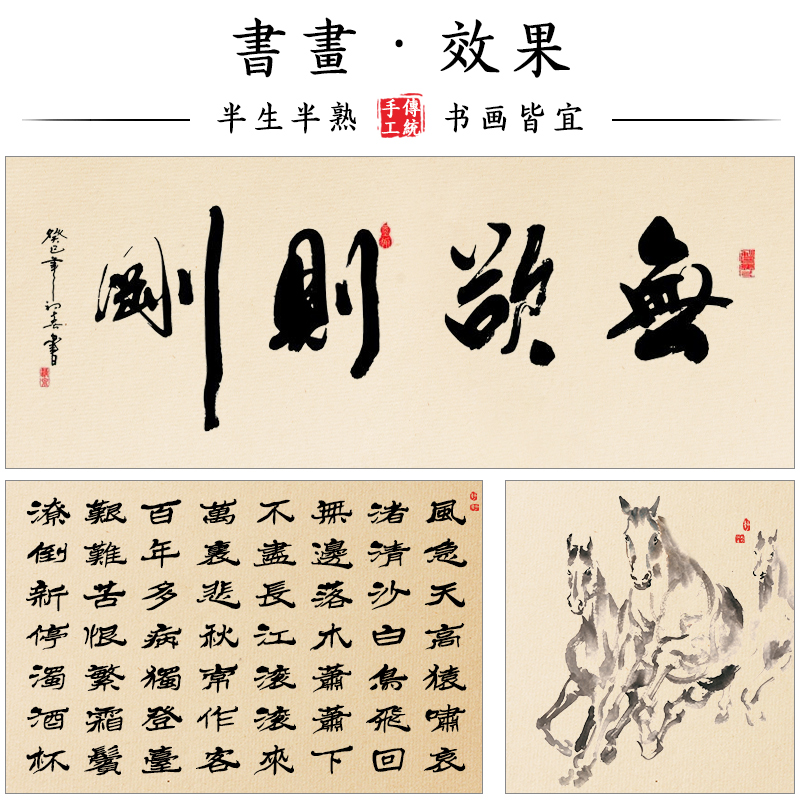 書畫·效果
半生半熟
傳統
手工
书画皆宜
無欲則剛
癸巳年
風急天高猿嘯哀
渚清沙白鳥飛回
無邊落木蕭蕭下
不盡長江滾滾來
萬裏悲秋常作客
百年多病獨登臺
艱難苦恨繁霜鬢
潦倒新停濁酒杯